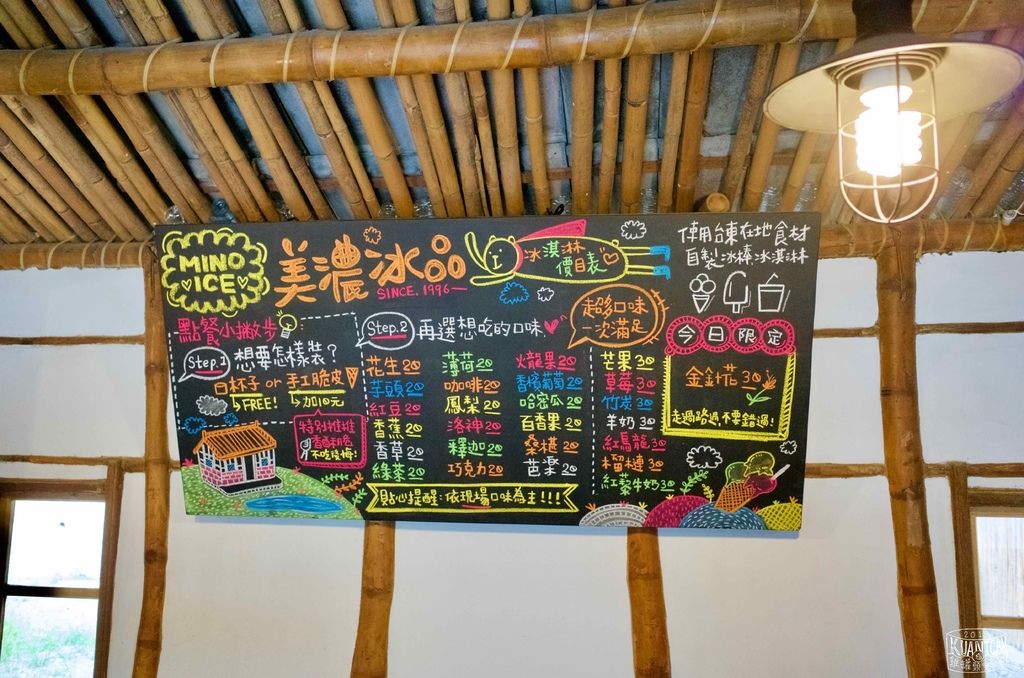 MINO
ICE
美濃冰品
SINCE. 1996
冰淇淋
價目表
使用台東在地食材
自製冰棒冰淇淋
點餐小撇步
Step.1 想要怎樣裝？
杯子 or 手工脆皮
FREE! 加10元
特別推推
香酥脆脆
不吃後悔！
Step.2 再選想吃的口味
超多口味
一次滿足
花生20 薄荷20 火龍果20
芋頭20 咖啡20 香檳葡萄20
紅豆20 鳳梨20 哈密瓜20
香蕉20 洛神20 百香果20
香草20 釋迦20 桑椹20
綠茶20 巧克力20 芭樂20
芒果30
草莓30
竹炭30
羊奶30
紅烏龍30
榴槤30
紅藜牛奶30
貼心提醒：依現場口味為主！！！
今日限定
金針花30
走過路過，不要錯過！
KUAN
罐頭